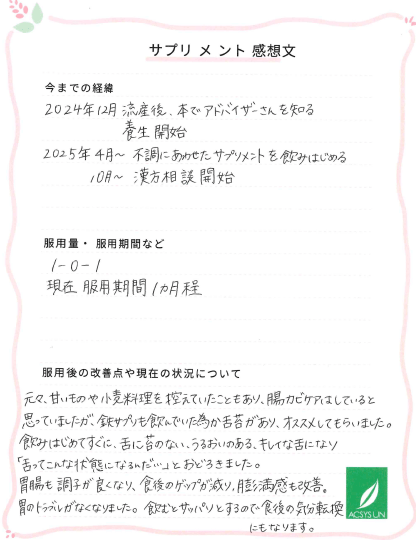 サプリメント感想文
今までの経緯
2024年12月 流産後、本でアドバイザーさんを知る
養生開始
2025年4月〜 不調にあわせたサプリメントを飲みはじめる
10月〜 漢方相談開始
服用量・服用期間など
1-0-1
現在 服用期間 1カ月程
服用後の改善点や現在の状況について
元々、甘いものや小麦料理を控えていたこともあり、腸カビケアはしていると
思っていましたが、鉄サプリも飲んでいた為か舌苔があり、オススメしてもらいました。
飲みはじめてすぐに、舌に苔のない、うるおいのある、キレイな舌になり
「舌ってこんな状態になるんだぃぃ」とおどろきました。
胃腸も調子が良くなり、食後のゲップが減り、膨満感も改善。
胃のトラブルがなくなりました。飲むとサッパリとするので食後の気分転換
にもなります。
ACSYSUN